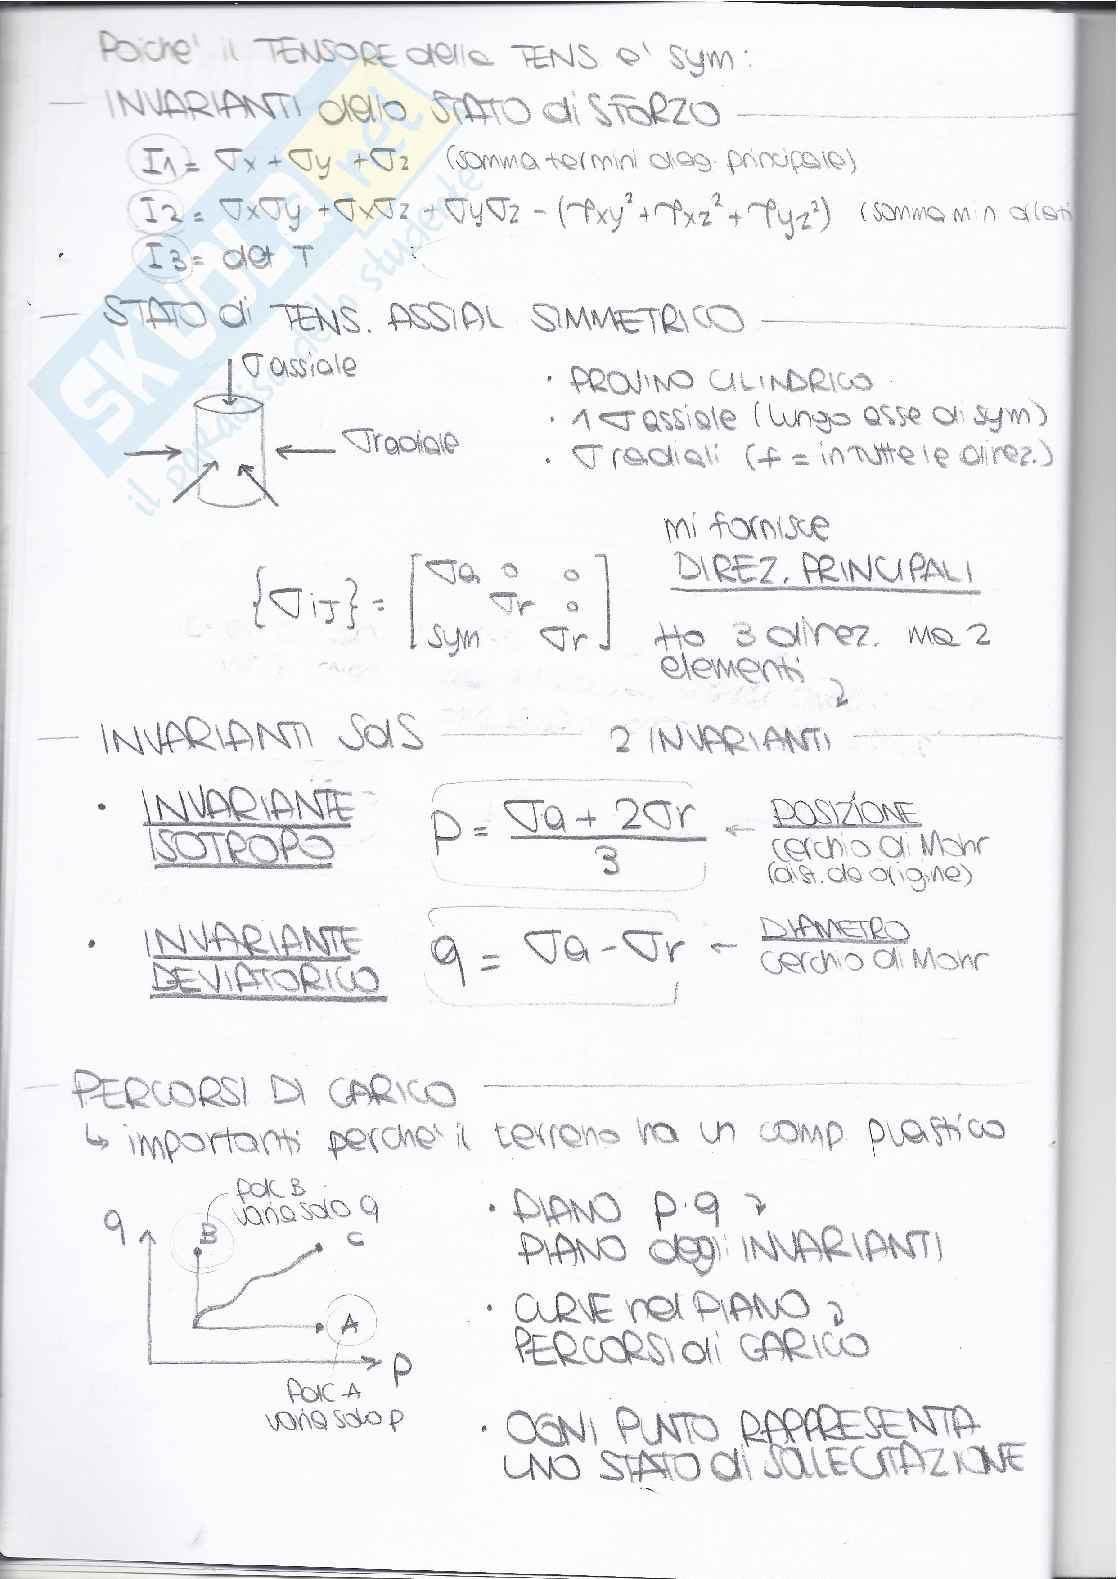 Poiche' il TENSORE delle TENS e' sym:
— INVARIANTI dello STATO di SFORZO
I1 = σx + σy + σz (somma termini diag. principale)
I2 = σxσy + σxσz + σyσz - (τxy² + τxz² + τyz²) (somma min
I3 = det T
— STATO di TENS. ASSIAL SIMMETRICO
σassiale
σradiale
· PROVINO CILINDRICO
· 1 σ assiale (lungo asse di sym)
· σ radiali (f = in tutte le direz.)
{σij} = [σa 0 0
σr 0
sym σr]
mi fornisce
DIREZ. PRINCIPALI
Ho 3 direz. ma 2
elementi
— INVARIANTI SdS — 2 INVARIANTI
· INVARIANTE
ISOTROPO
p = σa + 2σr / 3
← POSIZIONE
cerchio di Mohr
(dist. da origine)
· INVARIANTE
DEVIATORICO
q = σa - σr
← DIAMETRO
cerchio di Mohr
— PERCORSI DI CARICO
↳ importanti perche' il terreno ha un comp. plastico
pdc B
varia solo q
q
B
C
A
p
pdc A
varia solo p
· PIANO p·q
PIANO degli INVARIANTI
· CURVE nel PIANO
PERCORSI di CARICO
· OGNI PUNTO RAPPRESENTA
UNO STATO di SOLLECITAZIONE
SKUOLA.net
il paradiso dello studente